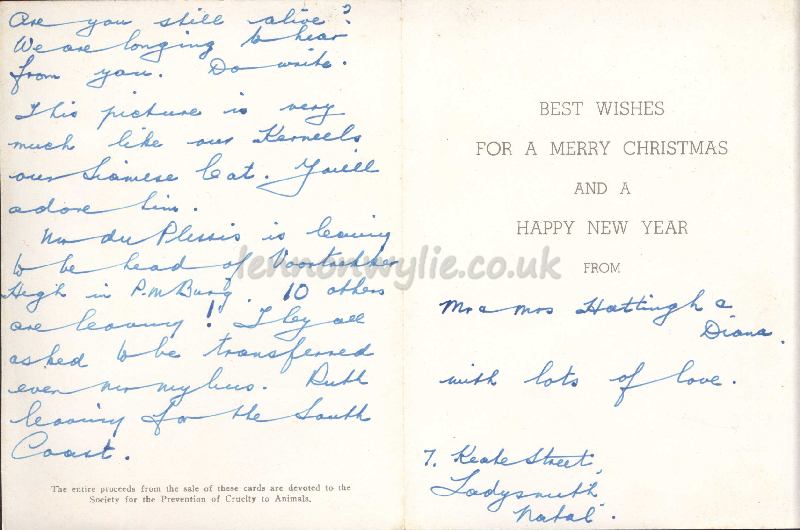 Are you still alive?
We are longing to hear
from you. Do write.
This picture is very
much like our Kerneels
our Siamese Cat. You'll
adore him.
Mr du Plessis is leaving
to be head of Voortrekker
High in P.M Burg. 10 others
are leaving! They all
asked to be transferred
even mr
Ruth
leaving for the South
Coast.
The entire proceeds from the sale of these cards are devoted to the
Society for the Prevention of Cruelty to Animals.
BEST WISHES
FOR A MERRY CHRISTMAS
AND A
HAPPY NEW YEAR
FROM
Mr & Mrs Hattingh &
Diana.
with lots of love.
7. Keate Street,
Ladysmith
Natal.
lemonwylie.co.uk